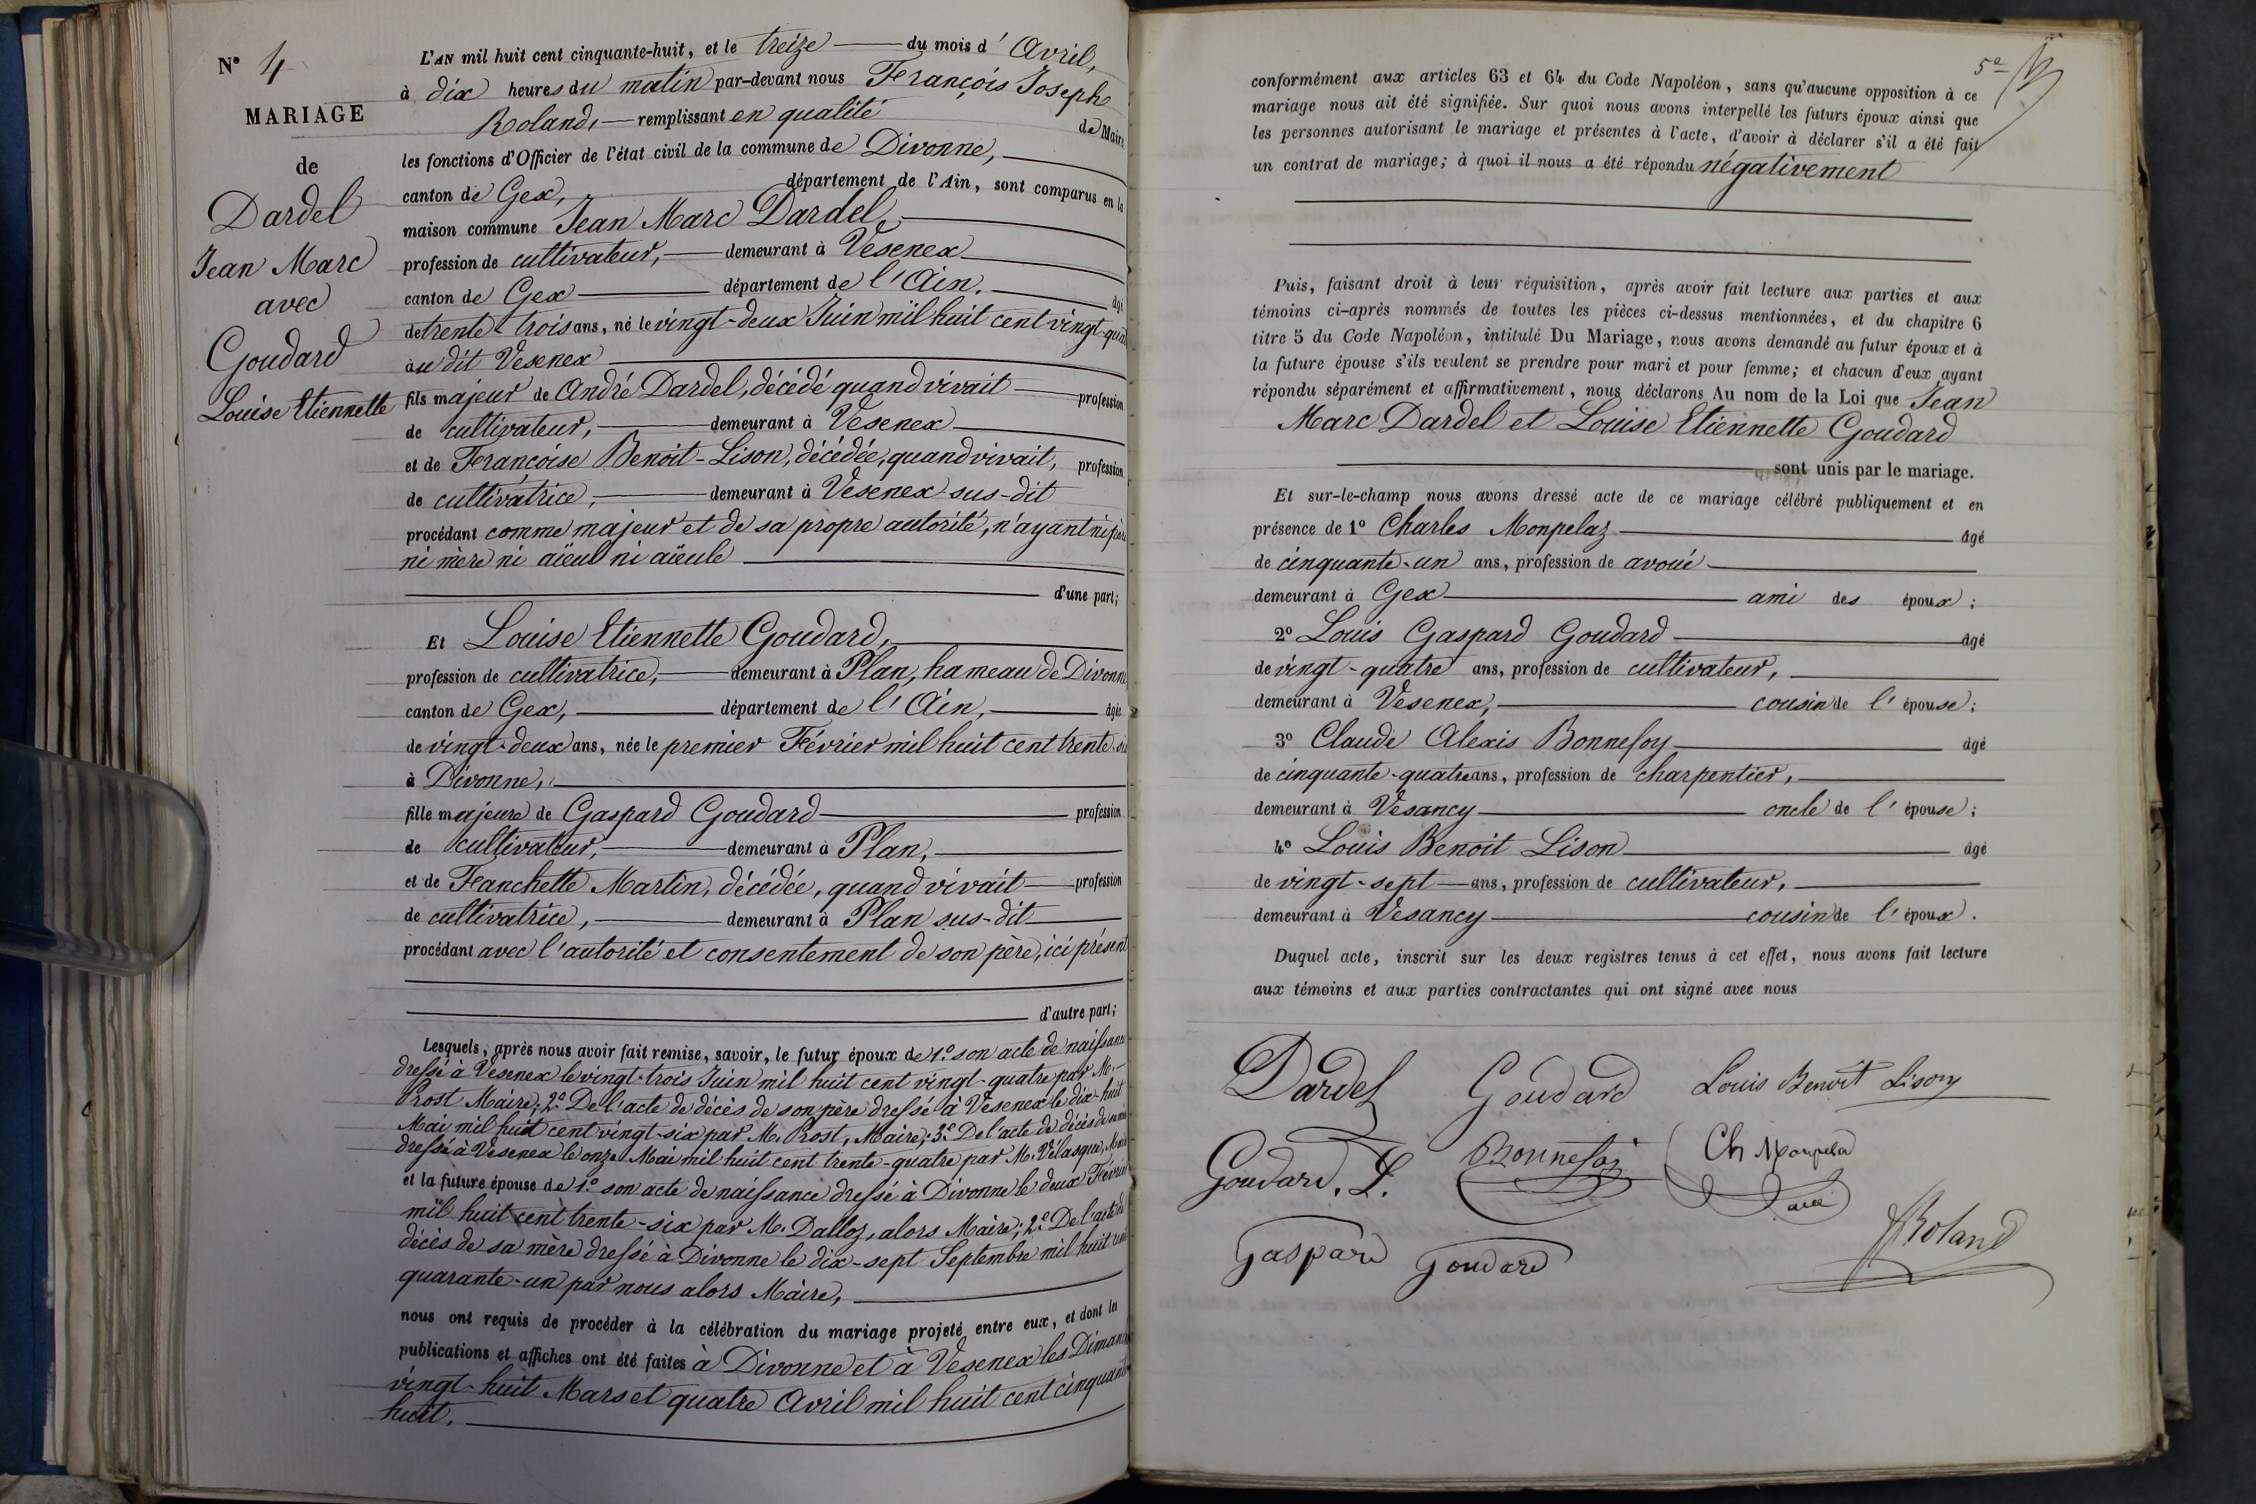 N° 4
MARIAGE
de
Dardel
Jean Marc
avec
Goudard
Louise Etiennette
L'AN mil huit cent cinquante-huit, et le treize du mois d' Avril,
à dix heures du matin par-devant nous François Joseph
Roland, remplissant en qualité de Maire
les fonctions d'Officier de l'état civil de la commune de Divonne,
canton de Gex, département de l'Ain, sont comparus en la
maison commune Jean Marc Dardel,
profession de cultivateur, demeurant à Vesenex
canton de Gex département de l'Ain, âgé
de trente-trois ans, né le vingt-deux Juin mil huit cent vingt-quat
au dit Vesenex
fils majeur de André Dardel, décédé quand vivait profession
de cultivateur, demeurant à Vesenex
et de Françoise Benoit-Lison, décédée, quand vivait, profession
de cultivatrice, demeurant à Vesenex sus-dit
procédant comme majeur et de sa propre autorité, n'ayant ni père
ni mère ni aïeul ni aïeule
d'une part;
Et Louise Etiennette Goudard,
profession de cultivatrice, demeurant à Plan, hameau de Divonne
canton de Gex, département de l'Ain, âgée
de vingt-deux ans, née le premier Février mil huit cent trente-six
à Divonne,
fille majeure de Gaspard Goudard profession
de cultivateur, demeurant à Plan,
et de Fanchette Martin, décédée, quand vivait profession
de cultivatrice, demeurant à Plan sus-dit
procédant avec l'autorité et consentement de son père, ici présent
d'autre part;
Lesquels, après nous avoir fait remise, savoir, le futur époux de 1° son acte de naissance
dressé à Vesenex le vingt-trois Juin mil huit cent vingt-quatre par M.
Prost Maire; 2° De l'acte de décès de son père dressé à Vesenex le dix-huit
Mai mil huit cent vingt-six par M. Prost, Maire; 3° De l'acte de décès de sa mère
dressé à Vesenex le onze Mai mil huit cent trente-quatre par M. Vélasque, Maire
et la future épouse de 1° son acte de naissance dressé à Divonne le deux Février
mil huit cent trente-six par M. Dalloz, alors Maire; 2° De l'acte de
décès de sa mère dressé à Divonne le dix-sept Septembre mil huit cent
quarante-un par nous alors Maire,
nous ont requis de procéder à la célébration du mariage projeté entre eux, et dont les
publications et affiches ont été faites à Divonne et à Vesenex les Dimanches
vingt-huit Mars et quatre Avril mil huit cent cinquante
huit.
5e
conformément aux articles 63 et 64 du Code Napoléon, sans qu'aucune opposition à ce
mariage nous ait été signifiée. Sur quoi nous avons interpellé les futurs époux ainsi que
les personnes autorisant le mariage et présentes à l'acte, d'avoir à déclarer s'il a été fait
un contrat de mariage; à quoi il nous a été répondu négativement
Puis, faisant droit à leur réquisition, après avoir fait lecture aux parties et aux
témoins ci-après nommés de toutes les pièces ci-dessus mentionnées, et du chapitre 6
titre 5 du Code Napoléon, intitulé Du Mariage, nous avons demandé au futur époux et à
la future épouse s'ils veulent se prendre pour mari et pour femme; et chacun d'eux ayant
répondu séparément et affirmativement, nous déclarons Au nom de la Loi que Jean
Marc Dardel et Louise Etiennette Goudard
sont unis par le mariage.
Et sur-le-champ nous avons dressé acte de ce mariage célébré publiquement et en
présence de 1° Charles Monpelaz âgé
de cinquante-un ans, profession de avoué
demeurant à Gex ami des époux;
2° Louis Gaspard Goudard âgé
de vingt-quatre ans, profession de cultivateur,
demeurant à Vesenex, cousin de l'épouse;
3° Claude Alexis Bonnefoy âgé
de cinquante-quatre ans, profession de charpentier,
demeurant à Vesancy oncle de l'épouse;
4° Louis Benoit Lison âgé
de vingt-sept ans, profession de cultivateur,
demeurant à Vesancy cousin de l'époux.
Duquel acte, inscrit sur les deux registres tenus à cet effet, nous avons fait lecture
aux témoins et aux parties contractantes qui ont signé avec nous
Dardel Goudard Louis Benoit Lison
Goudard, L. Bonnefoy Ch Monpela
Gaspard Goudard JRoland